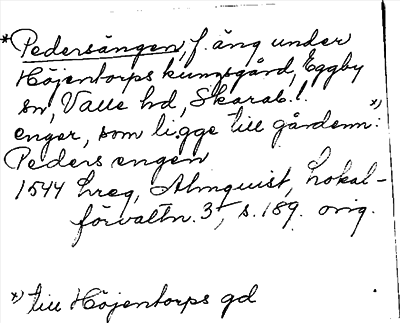 *Pedersängen, f. äng under
Höjentorps kungsgård, Eggby
sn, Valle hd, Skarab. l.
enger, som ligge till gårdenn*): 
Peders engen
1544 hreg, Almquist, Lokal-
förvaltn. 3, s. 189. orig.
*) till Höjentorps gd